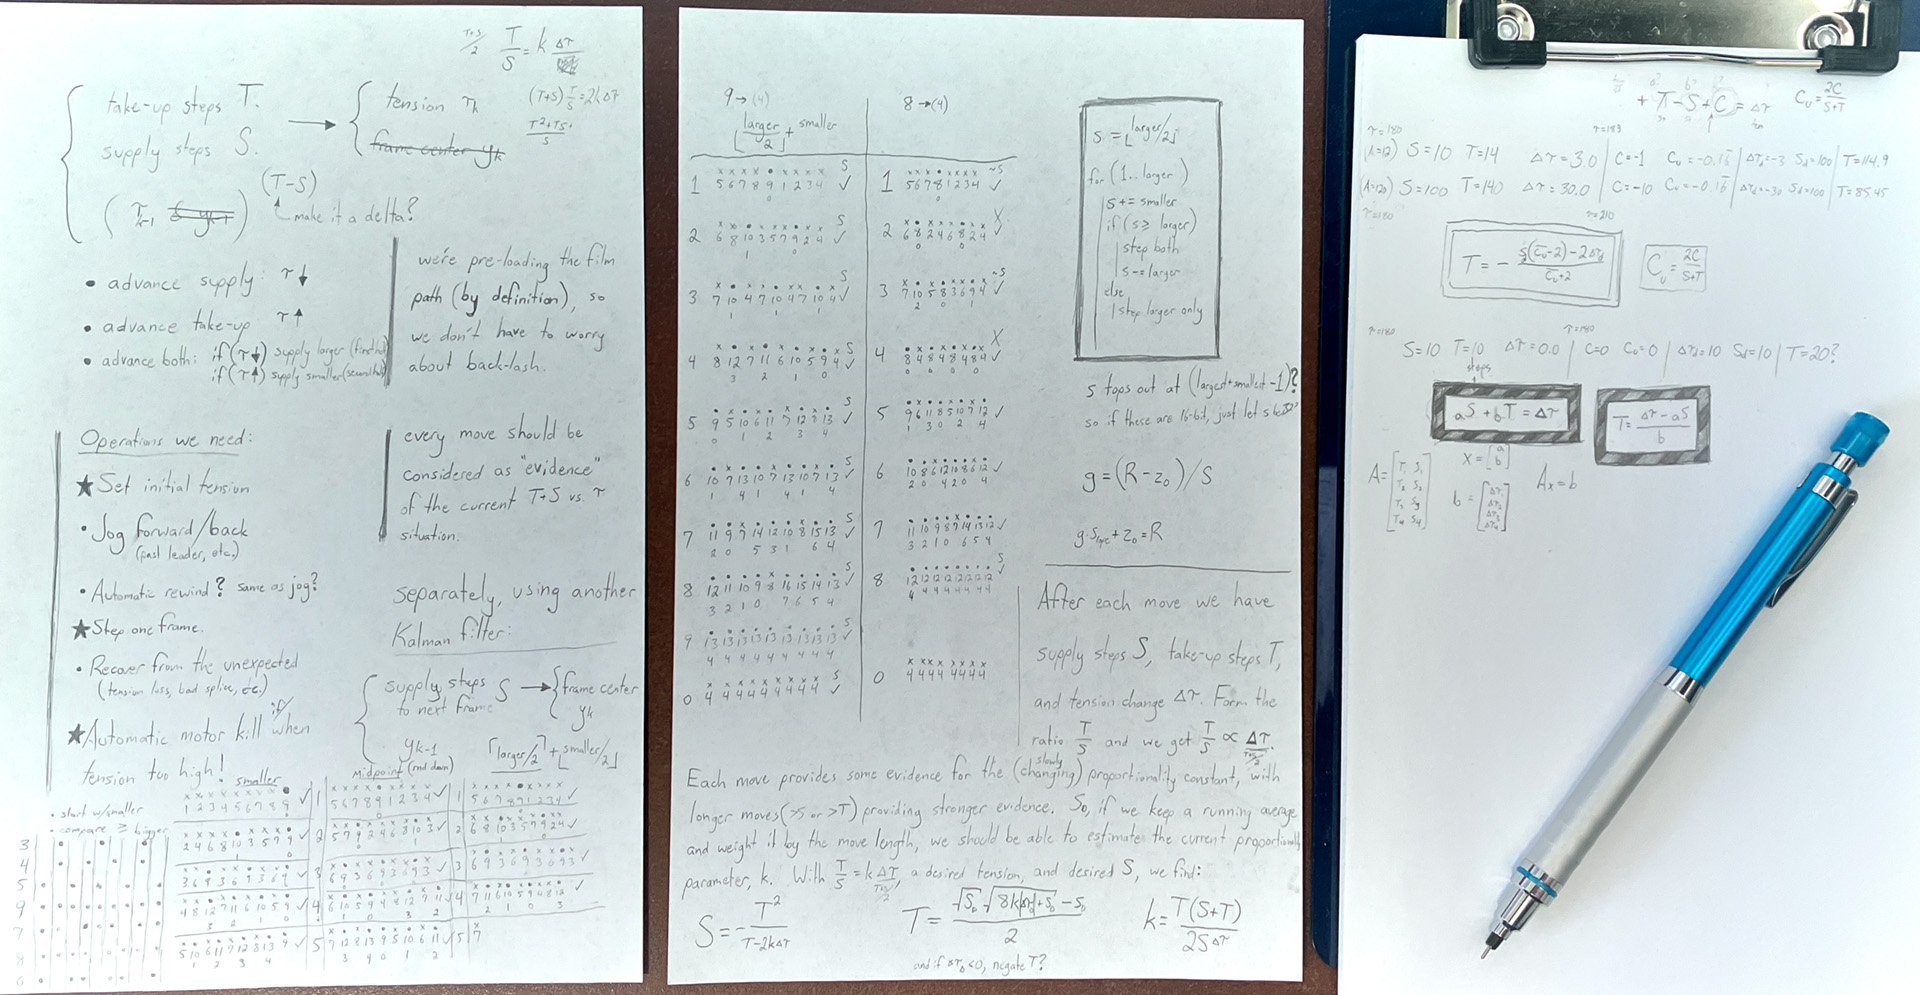 T+S/2 T/S = k Δτ
take-up steps T.
supply steps S.
tension τk
frame center yk
(T+S) T/S = 2kΔτ
T²+TS/S
(T-S)
τk-1
make it a delta?
• advance supply: τ↓
• advance take-up τ↑
• advance both: if (τ↓) supply larger (first half)
if (τ↑) supply smaller (second half)
we're pre-loading the film
path (by definition), so
we don't have to worry
about back-lash.
Operations we need:
★ Set initial tension
• Jog forward/back
(past leader, etc.)
• Automatic rewind? same as jog?
★ Step one frame.
• Recover from the unexpected
(tension loss, bad splice, etc.)
★ Automatic motor kill if/when
tension too high!
every move should be
considered as "evidence"
of the current T+S vs. τ
situation.
separately, using another
Kalman filter:
supply steps S
to next frame
→ frame center
yk
yk-1
• start w/smaller
• compare ≥ bigger
smaller
midpoint (rnd down)
⌈larger/2⌉ + ⌊smaller/2⌋
3
4
5
9
7
8
6
1 2 3 4 5 6 7 8 9 ✓
1 5 6 7 8 9 1 2 3 4 ✓
1 5 6 7 8 9 1 2 3 4 ✓
2 4 6 8 10 3 5 7 9 ✓
2 5 7 9 2 4 6 8 10 3 ✓
2 6 8 10 3 5 7 9 2 4 ✓
3 6 9 3 6 9 3 6 9 ✓
3 6 9 3 6 9 3 6 9 3 ✓
3 6 9 3 6 9 3 6 9 3 ✓
4 8 12 7 11 6 10 5 9 ✓
4 6 10 5 9 4 8 12 7 11 ✓
4 7 11 6 10 5 9 4 8 12 ✓
5 10 6 11 7 12 8 13 9 ✓
5 7 12 8 13 9 5 10 6 11 ✓
5 7
9 → (4)
⌊larger/2⌋ + smaller
8 → (4)
1 5 6 7 8 9 1 2 3 4 ✓ S
1 5 6 7 8 1 2 3 4 ✓ ~S
2 6 8 10 3 5 7 9 2 4 ✓ S
2 6 8 2 4 6 8 2 4 ✓ X
3 7 10 4 7 10 4 7 10 4 ✓ S
3 7 10 5 8 3 6 9 4 ✓ ~S
4 8 12 7 11 6 10 5 9 4 ✓ S
4 8 4 8 4 8 4 8 4 ✓ X
5 9 5 10 6 11 7 12 8 13 ✓ S
5 9 6 11 8 5 10 7 12 ✓
6 10 7 13 10 7 13 10 7 13 ✓ S
6 10 8 6 12 10 8 6 12 ✓
7 11 9 7 14 12 10 8 15 13 ✓ S
7 11 10 9 8 7 14 13 12 ✓
8 12 11 10 9 8 16 15 14 13 ✓ S
8 12 12 12 12 12 12 12 12 ✓ S
9 13 13 13 13 13 13 13 13 13 ✓ S
0 4 4 4 4 4 4 4 4 4 ✓ S
0 4 4 4 4 4 4 4 4
s = ⌊larger/2⌋
for (1..larger)
s += smaller
if (s ≥ larger)
step both
s -= larger
else
step larger only
s tops out at (largest+smallest-1)?
so if these are 16-bit, just let s be 32?
g = (R - z₀)/S
g·s + z₀ = R
After each move we have
supply steps S, take-up steps T,
and tension change Δτ. Form the
ratio T/S and we get T/S ∝ Δτ/(T+S)/2.
Each move provides some evidence for the (slowly changing) proportionality constant, with
longer moves (>S or >T) providing stronger evidence. So, if we keep a running average
and weight it by the move length, we should be able to estimate the current proportionality
parameter, k. With T/S = k Δτ/(T+S)/2, a desired tension, and desired S, we find:
S = - T²/T-2kΔτ
T = √S₀ √8k|Δτ₀|+S₀ - S₀ / 2
k = T(S+T)/2SΔτ
and if Δτ₀<0, negate T?
+ T - S + C = Δτ
Cu = 2C/S+T
τ=180
τ=183
(A=12) S=10 T=14 Δτ=3.0 C=-1 Cu=-0.16 Δτd=-3 Sd=100 T=114.9
(A=120) S=100 T=140 Δτ=30.0 C=-10 Cu=-0.16 Δτd=-30 Sd=100 T=85.45
τ=180
τ=210
T = - S(Cu-2)-2Δτd / Cu+2
Cu = 2C/S+T
τ=180
τ=180
S=10 T=10 Δτ=0.0 C=0 Cu=0 Δτd=10 Sd=10 T=20?
steps
aS + bT = Δτ
T = Δτ - aS / b
A = [T₁ S₁ T₂ S₂ T₃ S₃ T₄ S₄]
x = [a b]
b = [Δτ₁ Δτ₂ Δτ₃ Δτ₄]
Ax = b